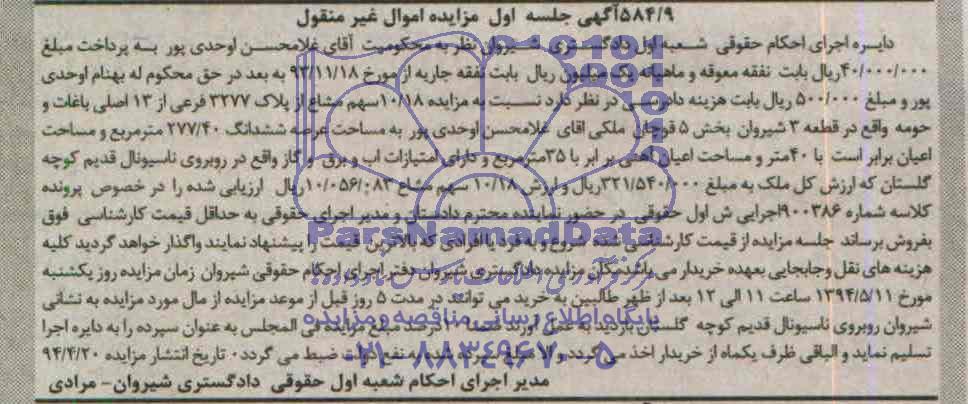 ۵۸۴/۹آگهی جلسه اول مزایده اموال غیر منقول
دایره اجرای احکام حقوقی شعبه اول دادگستری شیروان نظر به محکومیت آقای غلامحسن اوحدی پور به پرداخت مبلغ
۴۰/۰۰۰/۰۰۰ریال بابت نفقه معوقه و ماهیانه یک میلیون ریال بابت نفقه جاریه از مورخ ۹۳/۱۱/۱۸ به بعد در حق محکوم له بهنام اوحدی
پور و مبلغ ۵۰۰/۰۰۰ ریال بابت هزینه دادرسی در نظر دارد نسبت به مزایده ۱۰/۱۸سهم مشاع از پلاک ۳۲۷۷ فرعی از ۱۳ اصلی باغات و
حومه واقع در قطعه ۳ شیروان بخش ۵ قوچان ملکی اقای غلامحسن اوحدی پور به مساحت عرصه ششدانگ ۲۷۷/۴۰ مترمربع و مساحت
اعیان برابر است با ۴۰متر و مساحت اعیان آهنی بر ابر با ۳۵مترمربع و دارای امتیازات اب و برق و گاز واقع در روبروی ناسیونال قدیم کوچه
گلستان که ارزش کل ملک به مبلغ ۳۲۱/۵۴۰/۰۰۰ریال و ارزش ۱۰/۱۸ سهم مشاع ۱۰/۰۵۶/۰۸۳ریال ارزیابی شده را در خصوص پرونده
کلاسه شماره ۹۰۰۳۸۶اجرایی ش اول حقوقی در حضور نماینده محترم دادستان و مدیر اجرای حقوقی به حداقل قیمت کارشناسی فوق
بفروش برساند جلسه مزایده از قیمت کارشناسی شده شروع و به فرد یا افرادی که بالاترین قیمت را پیشنهاد نمایند واگذار خواهد گردید کلیه
هزینه های نقل وجابجایی بعهده خریدار می باشد مکان مزایده دادگستری شیروان دفتر اجرای احکام حقوقی شیروان زمان مزایده روز یکشنبه
مورخ ۱۳۹۴/۵/۱۱ ساعت ۱۱ الی ۱۲ بعد از ظهر طالبین به خرید می توانند در مدت ۵ روز قبل از موعد مزایده از مال مورد مزایده به نشانی
شیروان روبروی ناسیونال قدیم کوچه گلستان بازدید به عمل آورند ضمنا ۱۰درصد مبلغ مزایده فی المجلس به عنوان سپرده را به دایره اجرا
تسلیم نماید و الباقی ظرف یکماه از خریدار اخذ می گردد و الا مبلغ سپرده شده به نفع دولت ضبط می گردد۰ تاریخ انتشار مزایده ۹۴/۴/۲۰
مدیر اجرای احکام شعبه اول حقوقی دادگستری شیروان- مرادی
ParsNamadData
پایگاه اطلاع رسانی مناقصه و مزایده
۰۲۱-۸۸۳۴۹۶۷۰-۵